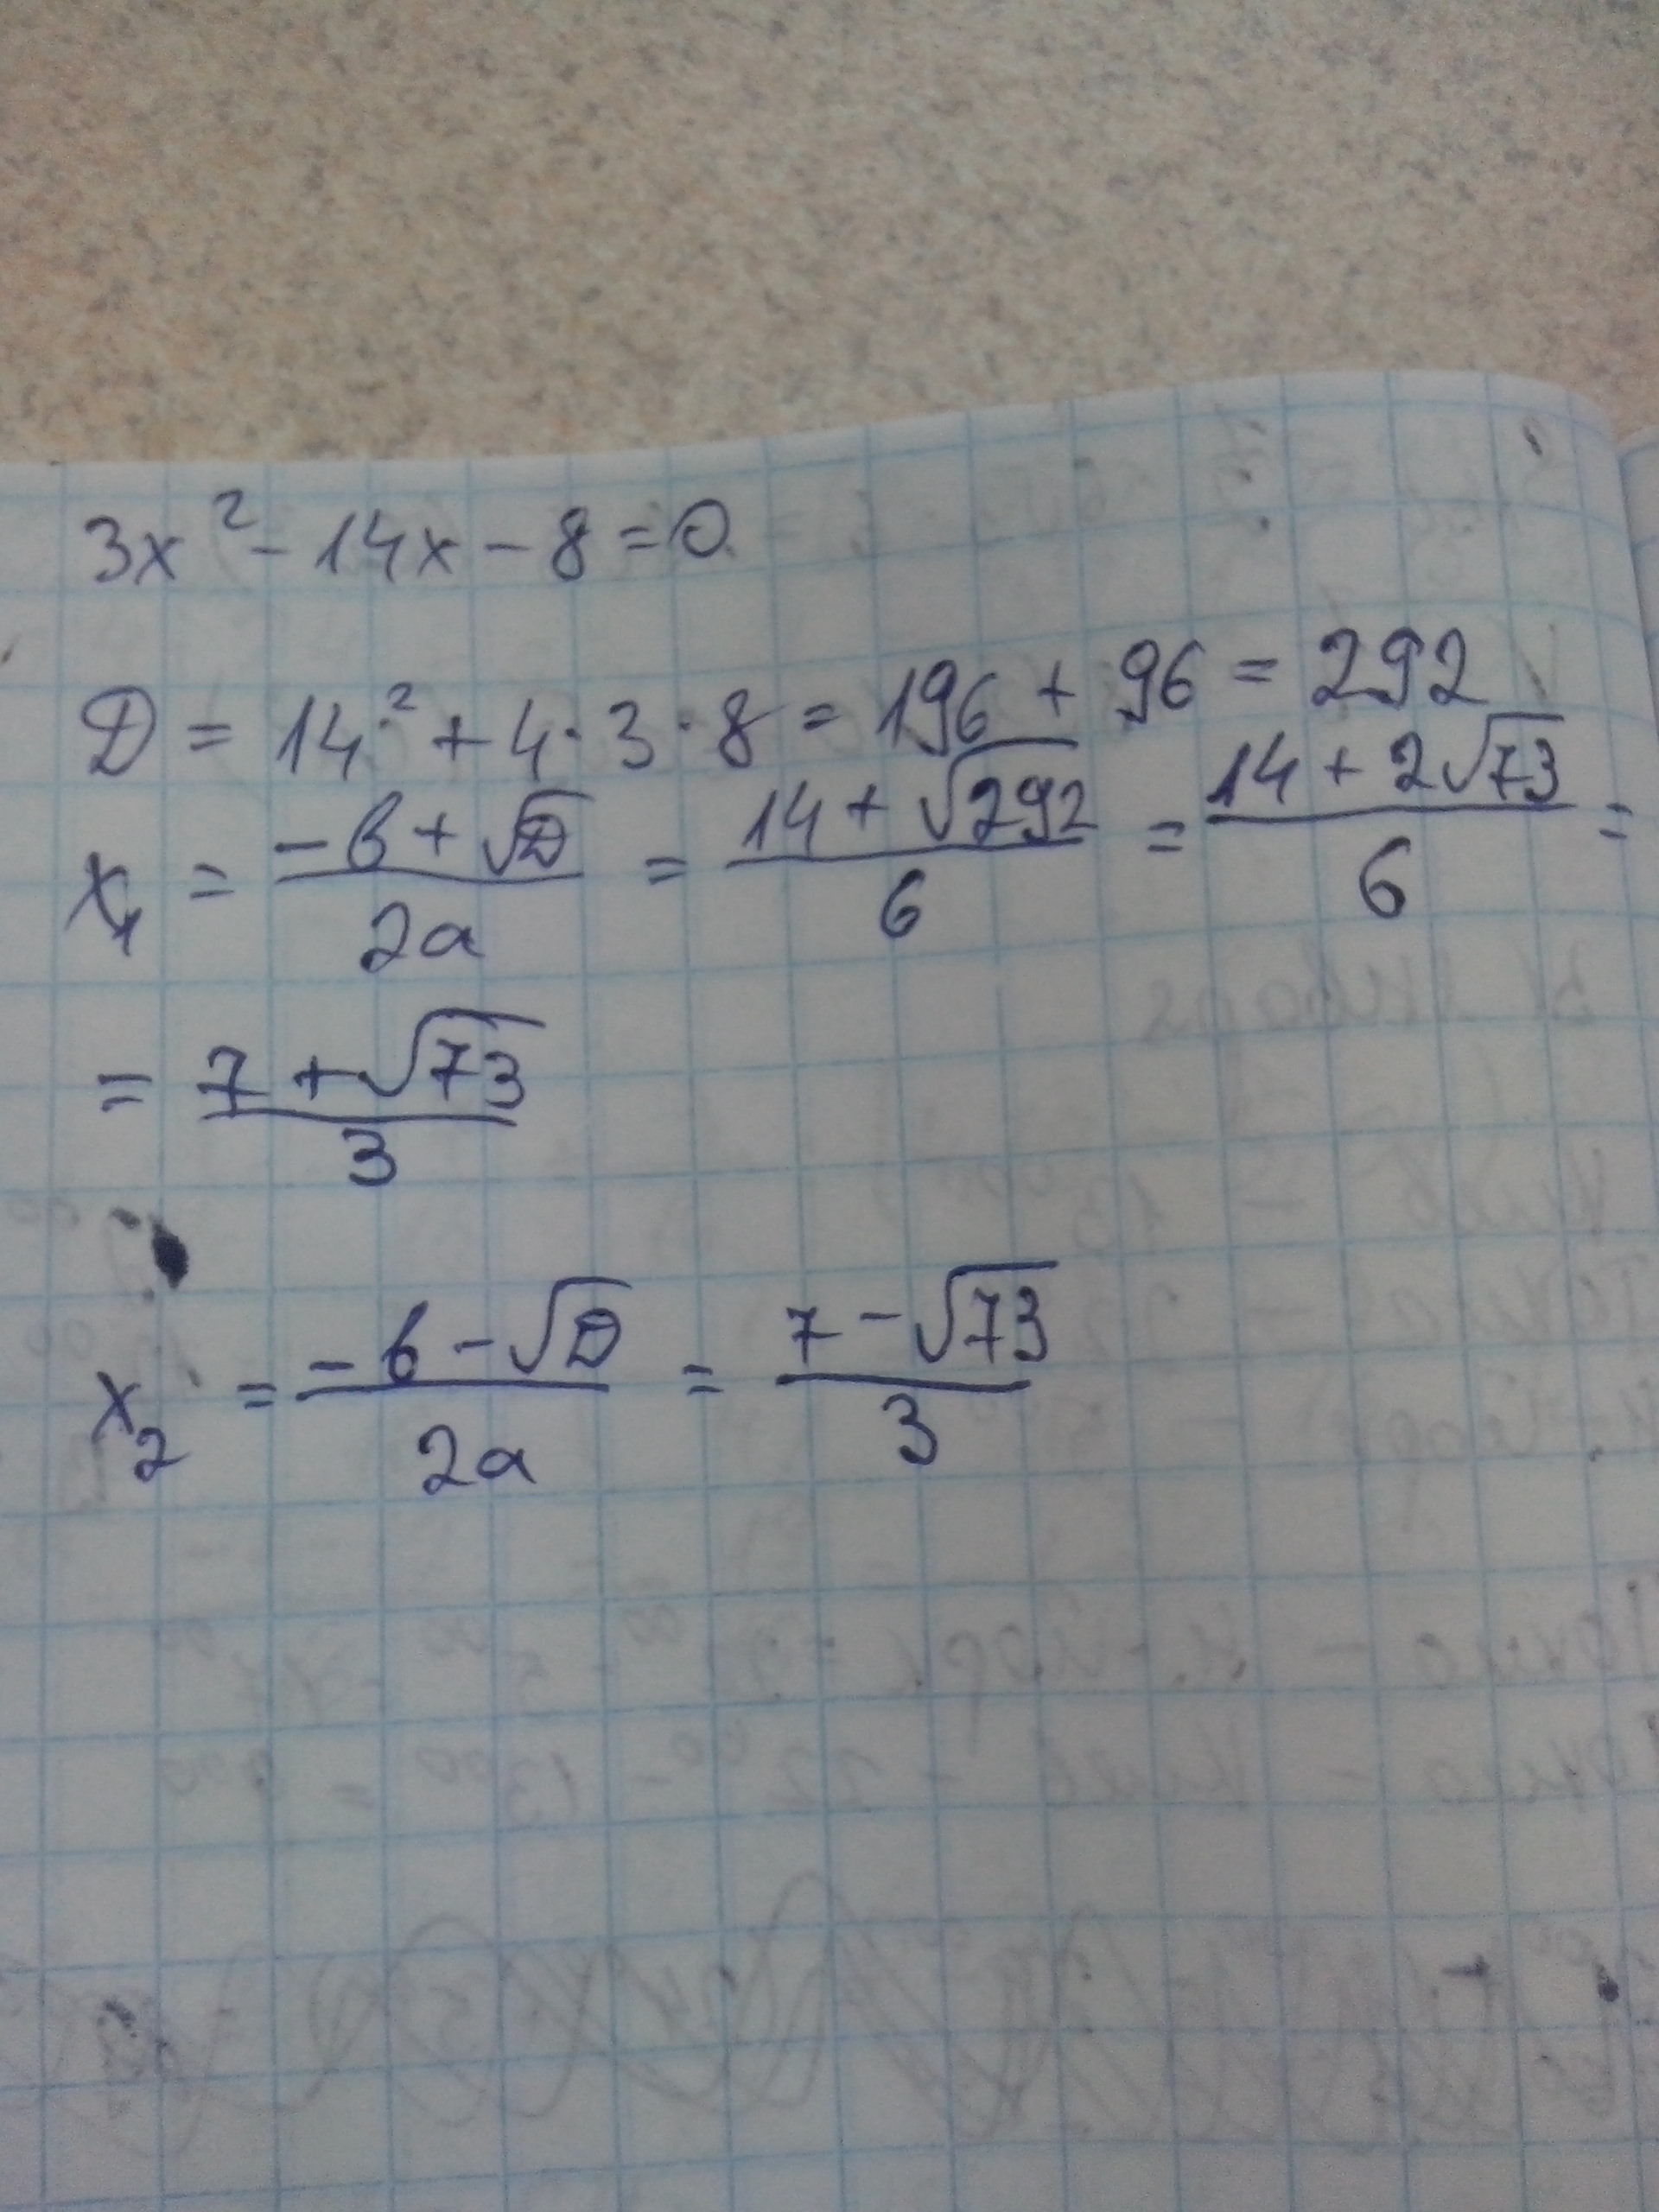 3x² - 14x - 8 = 0
D = 14² + 4·3·8 = 196 + 96 = 292
x₁ = (-b + √D)/(2a) = (14 + √292)/6 = (14 + 2√73)/6 =
= (7 + √73)/3
x₂ = (-b - √D)/(2a) = (7 - √73)/3